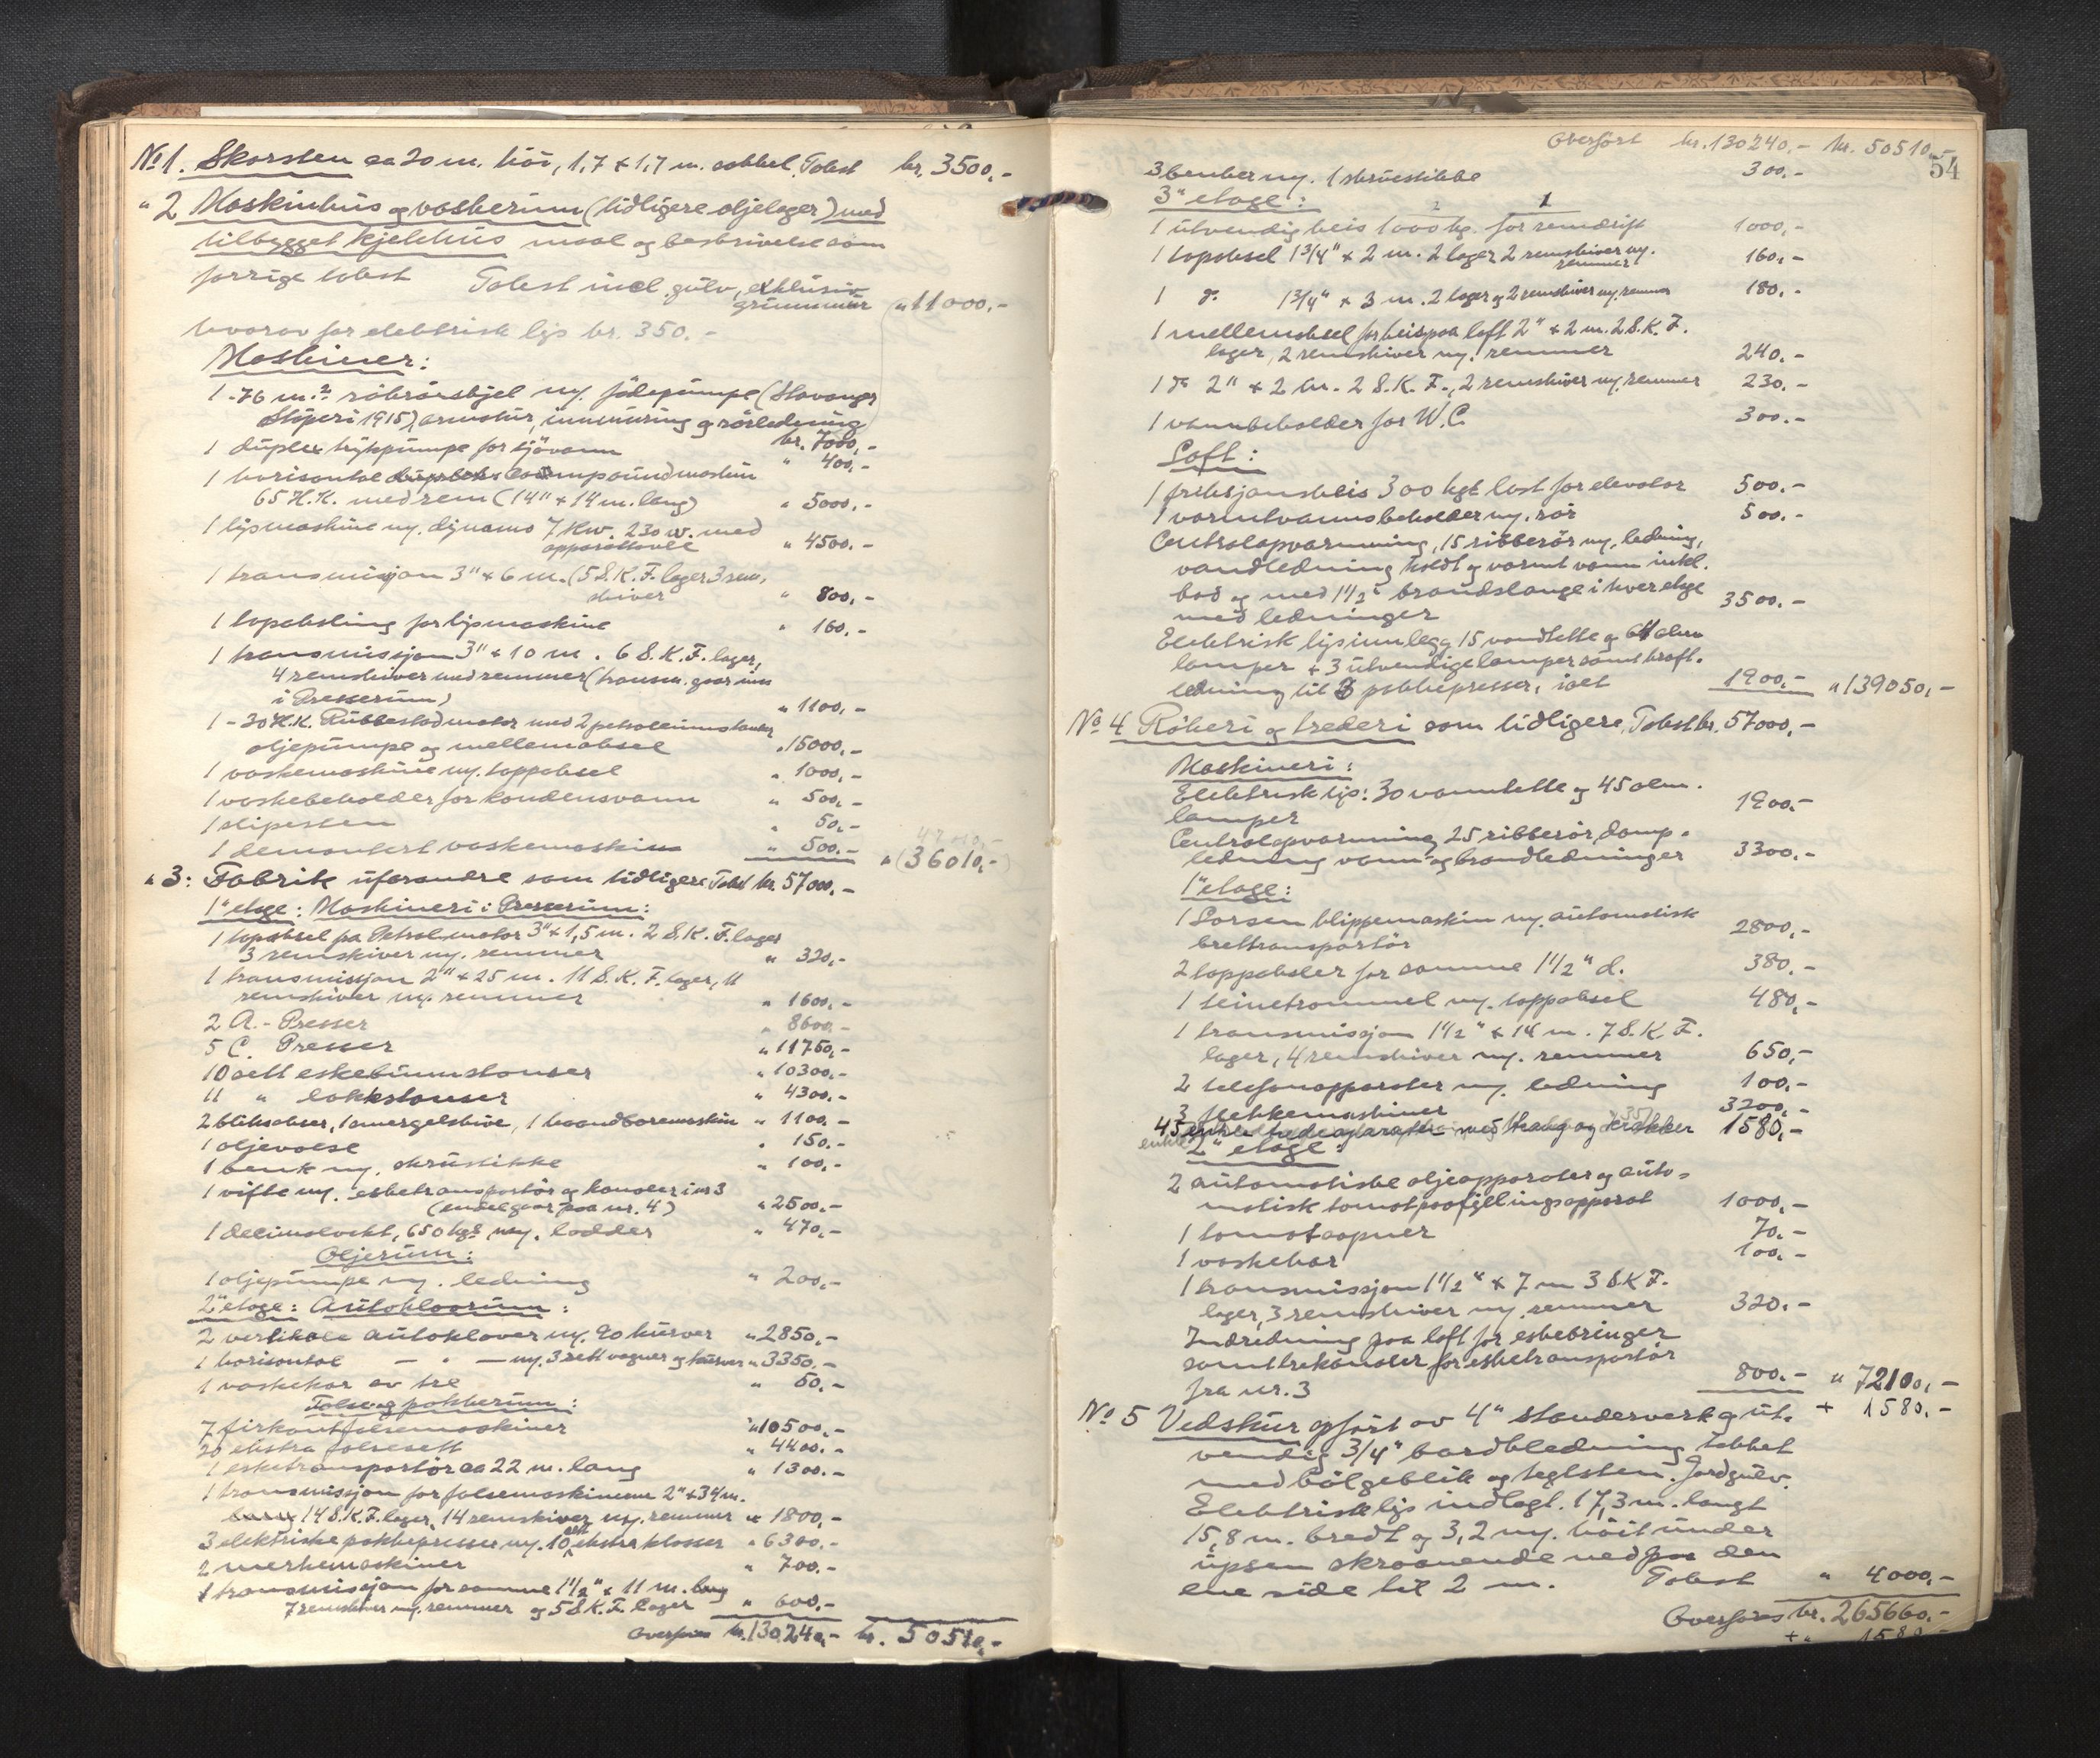 No 1. Skorsten ca 20 m. høi, 1,7 x 1,7 m. sokkel. Takst kr. 3500,-
" 2 Maskinhus og vaskerum (tidligere oljelager) med
tilbygget kjelehus maal og beskrivelse som
forrige takst Takst incl. gulv, exklusiv
grunnmur " 11000,-
hvorav for elektrisk lys kr. 350.-
Maskiner:
1 - 76 m.² rökrörskjel m/. födepumpe (Stavanger
Stöperi 1915), armatur, innmuring og rörledning
kr. 7000,-
1 duplex trykpumpe for sjövann " 400,-
1 horisontal compoundmaskin
65 H.K. med rem (14" x 14 m. lang) " 5000,-
1 lysmaskine m/. dynamo 7 Kw. 230 w. med
apparattavle " 4500,-
1 transmisjon 3" x 6 m. (5 S.K.F. lager 3 rem,
skiver " 800,-
1 topaksling for lysmaskine " 160,-
1 transmissjon 3" x 10 m. 6 S.K.F. lager,
4 remskiver med remmer (transm. gaar inn
i Presserum) " 1100,-
1 - 30 H.K. Rubbestadmotor med 2 petroleumstanker
oljepumpe og mellemaksel " 15000,-
1 vaskemaskine m/. toppaksel " 1000,-
1 vaskebeholder for kondensvann " 500,-
1 slipesten " 50,-
1 demontert vaskemaskin " 500,- " (36010,-)
" 3: Fabrik uforandre som tidligere Takst kr. 57000,-
1" etage: Maskineri i Presserum:
1 topaksel fra Petrol.motor 3" x 1,5 m. 2 S.K.F. lager
3 remskiver m/. remmer " 320,-
1 transmissjon 2" x 25 m. 11 S.K.F. lager, 11
remskiver m/. remmer " 1600,-
2 A.- Presser " 8600,-
5 C. Presser " 11750,-
10 sett eskebunnstanser " 10300,-
11 " lokkstanser " 4300,-
2 bliksakser, 1 smergelskive, 1 haandboremaskin " 1100,-
1 oljevalse " 150,-
1 benk m/. skrustikke " 100,-
1 vifte m/. esketransportör og kanaler i nr 3
(endel gaar paa nr. 4) " 2500,-
1 decimalvekt, 650 kgs m/. lodder " 470,-
Oljerum:
1 oljepumpe m/. ledning " 200,-
2" etage: Autoklavrum:
2 vertikale autoklaver m/. 90 kurver " 2850,-
1 horisontal — " — m/. 3 sett vogner og kurver " 3350,-
1 vaskekar av tre " 50,-
False og pakkerum:
7 firkantfalsemaskiner " 10500,-
20 ekstra falsesett " 4400,-
1 esketransportör ca 22 m. lang " 1300,-
1 transmissjon for falsemaskinerne 2" x 34 m.
lang 14 S.K.F. lager, 14 remskiver m/. remmer " 1800,-
3 elektriske pakkepresser m/. 10 sett ekstra klosser " 6300,-
2 merkemaskiner " 700,-
1 transmissjon for samme 1 1/2" x 11 m. lang
7 remskiver m/. remmer og 5 S.K.F. lager " 600,-
Overføres kr. 130240,- kr. 50510,-
Overført kr. 130240,- kr. 50510,-
54
3 benker m/. 1 skruestikke 300,-
3" etage:
2 1
1 utvendig heis 1000 kg. for remdrift 1000,-
1 topaksel 1 3/4" x 2 m. 2 lager 2 remskiver m/.
remmer 160,-
1 do 1 3/4" x 3 m. 2 lager og 2 remskiver m/. remmer 180,-
1 mellemaksel for heis paa loft 2" x 2 m. 2 S.K.F.
lager, 2 remskiver m/. remmer 240,-
1 do 2" x 2 m. 2 S.K.F., 2 remskiver m/. remmer 230,-
1 vannbeholder for W.C. 300,-
Loft:
1 friksjonsheis 300 kgs last for elevator 500,-
1 varmtvannsbeholder m/. rör 500,-
Centralopvarmning, 15 ribberör m/. ledning,
vandledning koldt og varmt vann inkl.
bad og med 1 1/2" brandslange i hver etage
med ledninger 3500,-
Elektrisk lys innlegg 15 vandtette og 64 alm
lamper + 3 utvendige lamper samt kraft.
ledning til 3 pakkepresser, ialt 1900,- " 139050,-
No 4 Rökeri og trederi som tidligere, Takst kr. 57000,-
Maskineri:
Elektrisk lys: 30 vanntette og 45 alm.
lamper 1900,-
Centralopvarmning, 25 ribberör, damp.
ledning vann- og brandledninger 3300,-
1" etage:
1 Larsen klippemaskin m/. automatisk
brettransportör 2800,-
2 toppaksler for samme 1 1/2" d. 380,-
1 seinetrommel m/. toppaksel 480,-
1 transmissjon 1 1/2" x 14 m. 7 S.K.F.
lager, 4 remskiver m/. remmer 650,-
2 telefonapparater m/. ledning 100,-
3 3200,-
45 enkle tredeaparater med og krakker 1580,-
enkle
2" etage:
2 automatiske oljeapparater og auto-
matisk tomatpaafyllingsapparat 1000,-
1 tomataapner 70,-
1 vaskekar 100,-
1 transmissjon 1 1/2" x 7 m 3 S.K.F.
lager, 3 remskiver m/. remmer 320,-
Indredning paa loft for eskebringer
samt trekanaler for esketransportör
fra nr. 3 800,- " 72100,-
+ 1580,-
No 5 Vedskur opført av 4" standerverk og ut-
vendig 3/4" bordkledning, tekket
med bölgeblik og teglsten. Jordgulv.
Elektrisk lys indlagt. 17,3 m. langt
15,8 m. bredt og 3,2 m/. höit under
upsen skraanende ned paa den
ene side til 2 m. Takst " 4000,-
Overføres kr. 265660,-
+ " 1580,-